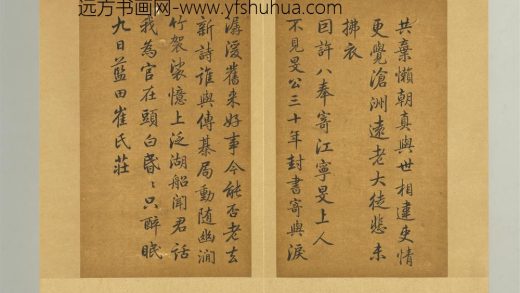 远方书画网 www.yfshuhua.com
共棄懶朝真與世相違吏情
更覺滄洲遠老大徒悲未
拂衣
因許八奉寄江寧旻上人
不見旻公三十年封書寄與淚
潺湲舊來好事今能否老去
新詩誰與傳棊局動隨幽澗
竹袈裟憶上泛湖船聞君話
我為官在頭白昏〻只醉眠
九日藍田崔氏莊